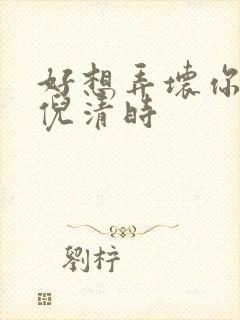 好想弄壞你
倪清時
劉梓